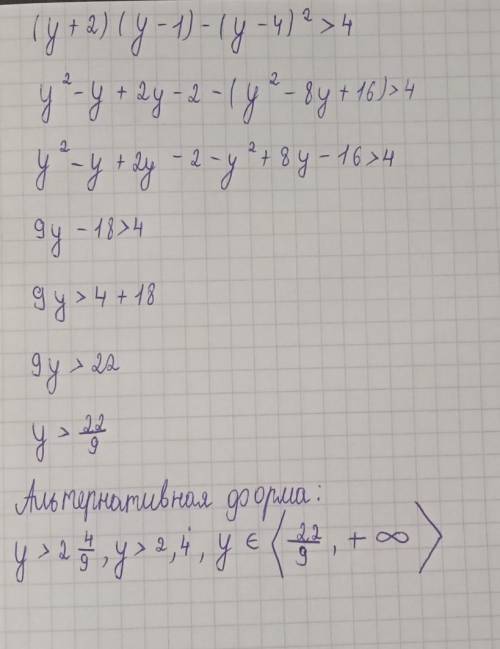 (y+2)(y-1)-(y-4)²>4
y²-y+2y-2-(y²-8y+16)>4
y²-y+2y-2-y²+8y-16>4
9y-18>4
9y>4+18
9y>22
y>22/9
Альтернативная форма:
y>2 4/9, y>2,4̇, y∈⟨22/9, +∞⟩